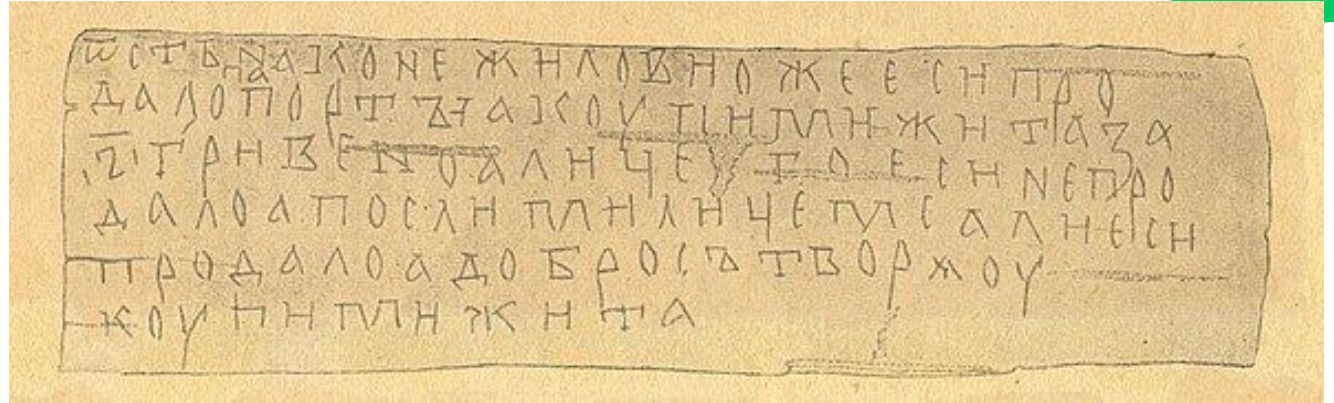 ѿстьпанаконежиловиожееси про
далопортъıакоупимижитаза
·ꙅ҃·гривеноаличегоесинепро
далоапослимилицемьалиеси
продалоадобросътворѧоу
коупимижита